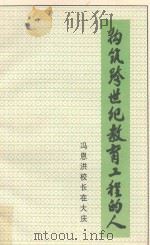 构筑跨世纪教育工程的人
冯恩洪校长在大庆